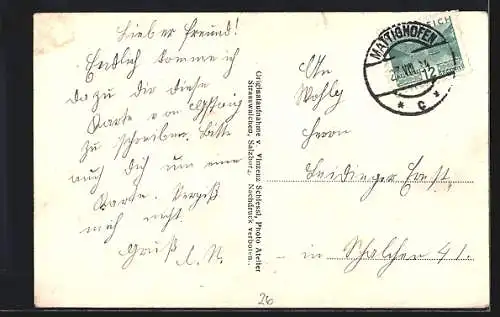 Lieber Freund!
Endlich komme ich
da zu dir diese
Karte von
zu schreiben. Bitte
auch dich um eine
Karte. Vergiß
mich nicht.
Gruß L. N.
Originalaufnahme v. Vinzenz Schlessl, Photo Atelier
Strasswalchen, Salzburg. Nachdruck verboten.
MATTIGHOFEN
VIII. 34
* C *
REICH
12
Wohlg
Herrn
in Schalchen 41.
26